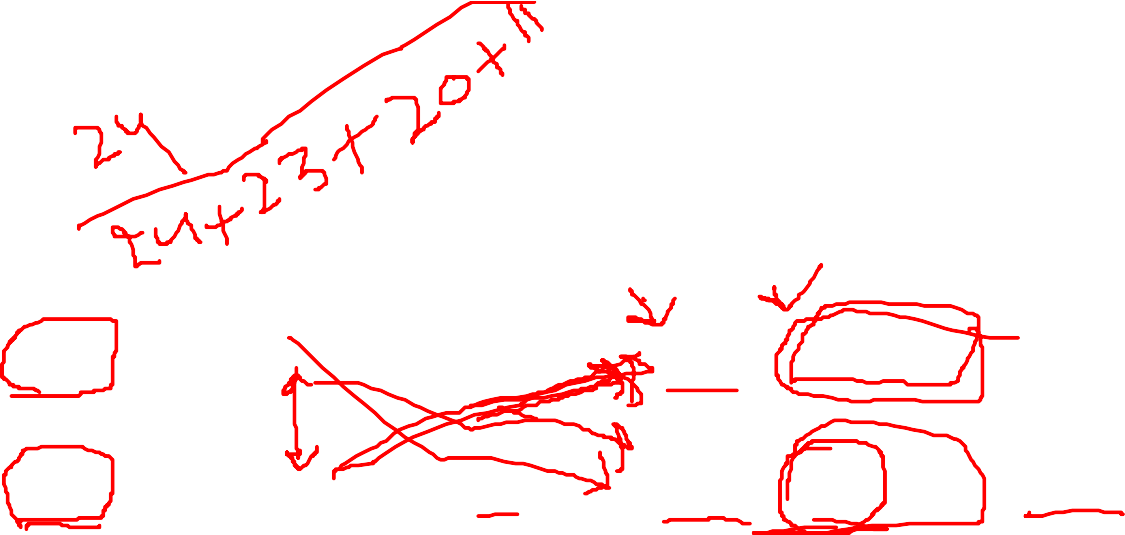 24
24+23+20+11